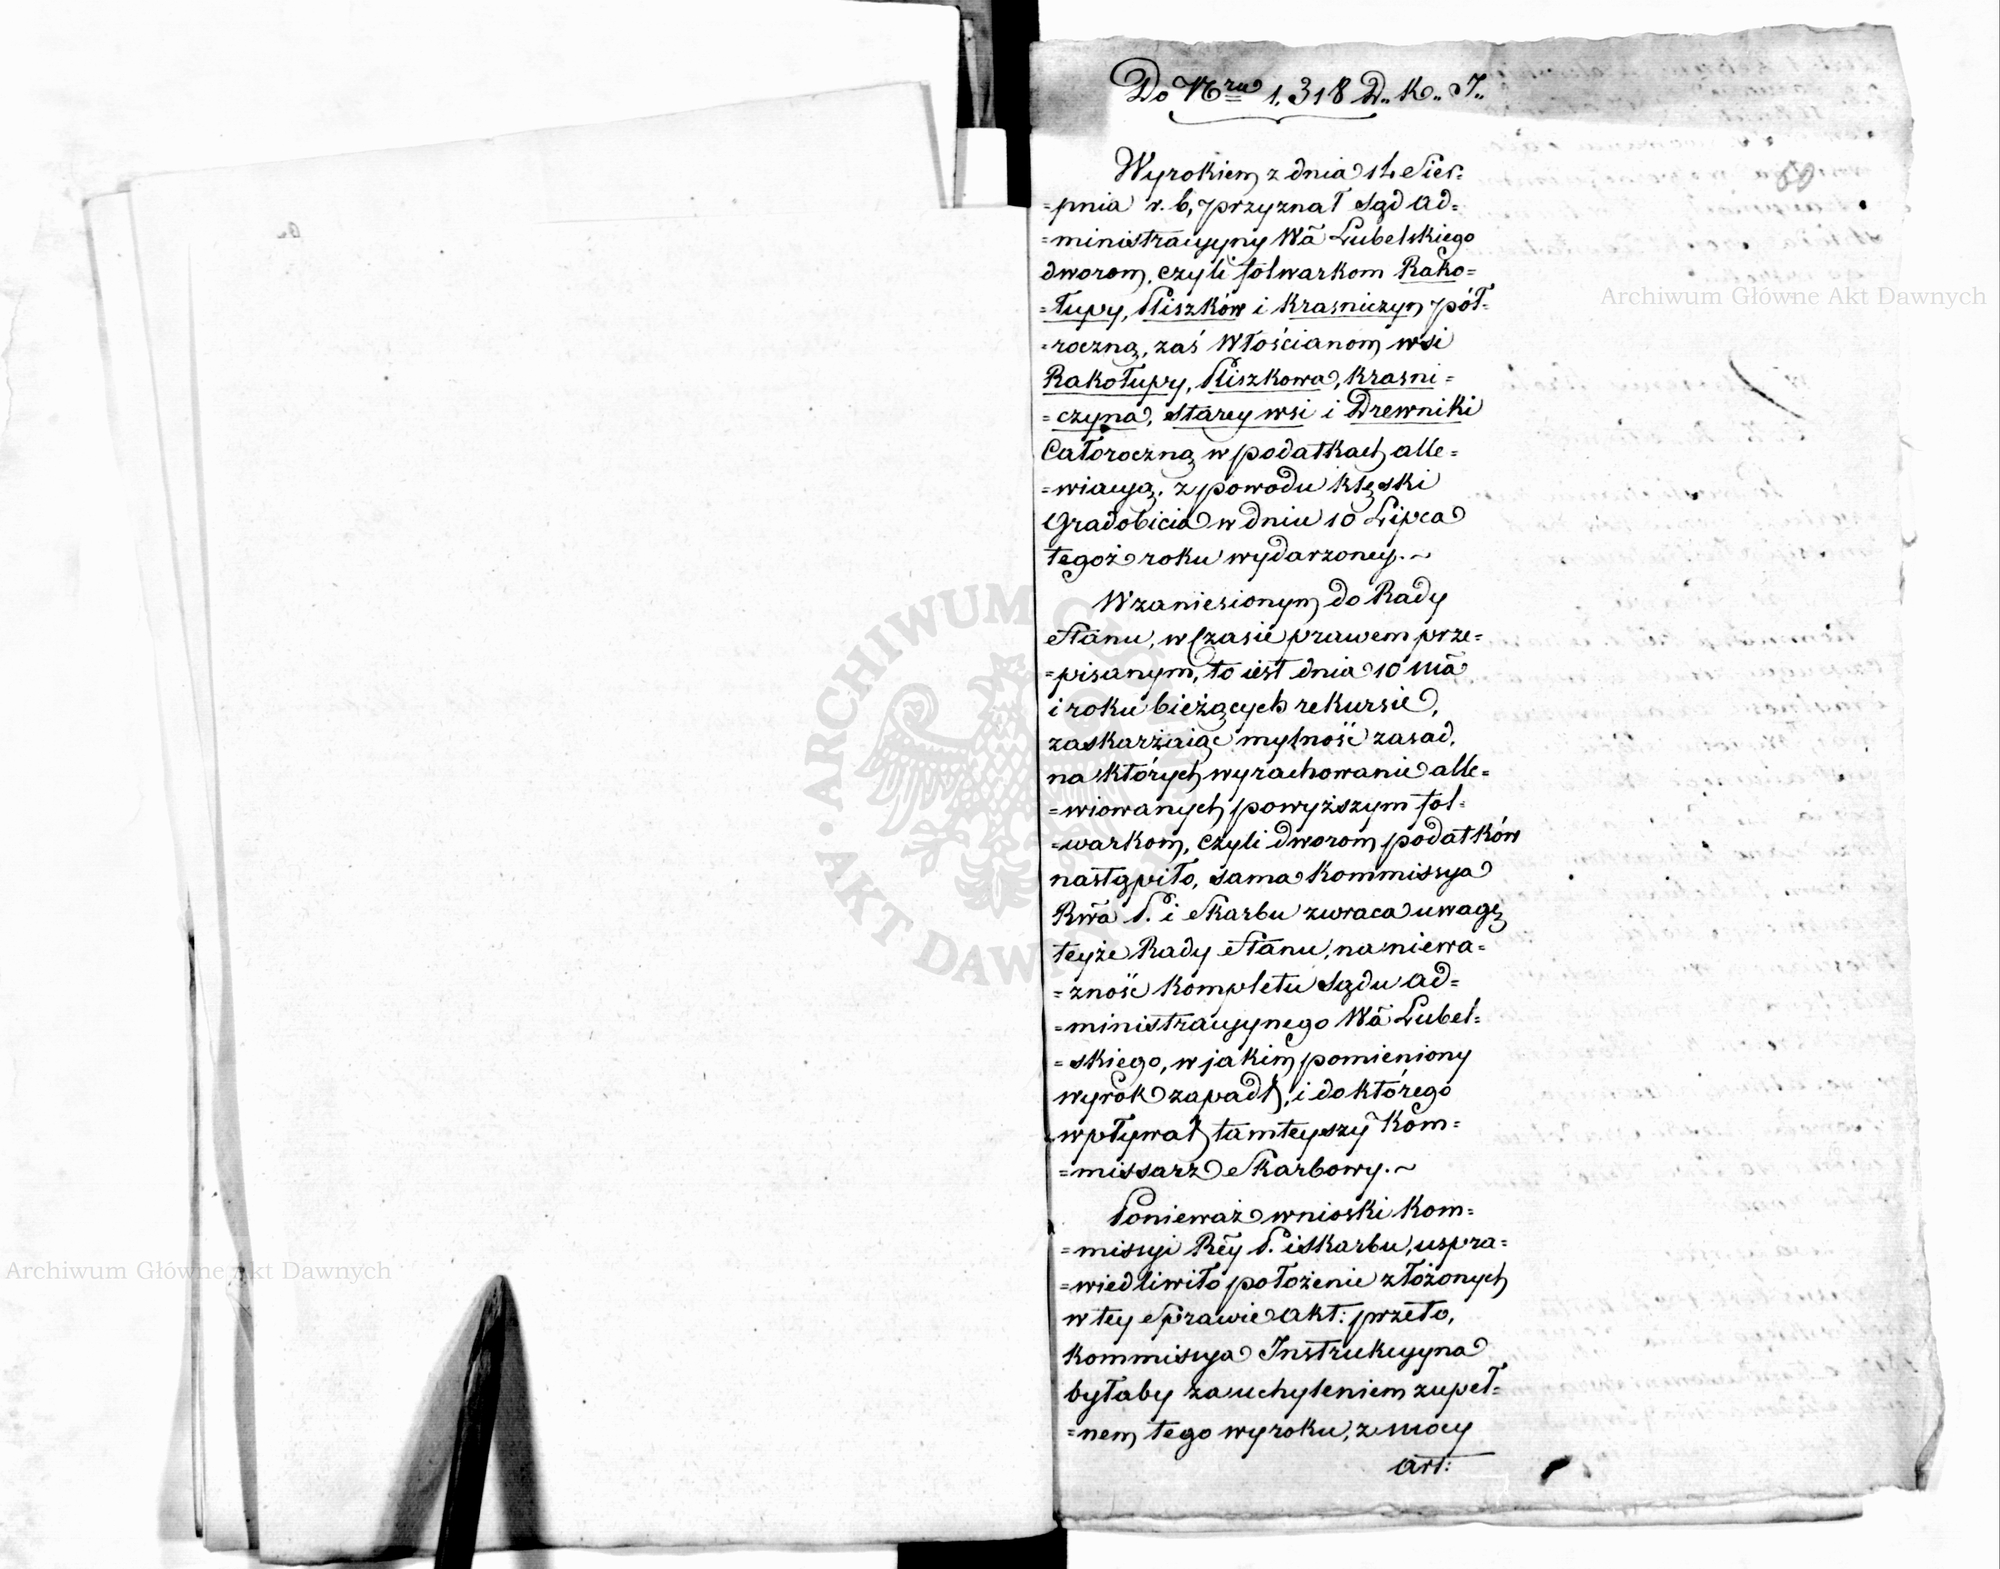 Do Nru 1,318 D.. K.. J..
60
Wyrokiem z dnia 14 Sier=
=pnia r. b, przyznał Sąd Ad=
=ministracyyny Wa Lubelskiego
dworom, czyli folwarkom Rako=
=łupy, Pliszków i Krasniczyn pół=
=roczną, zaś Włościanom wsi
Rakołupy, Pliszkowa, Krasni=
=czyna, Starey wsi i Drewniki
Całoroczną w podatkach alle=
=wiacyą, z powodu klęski
Gradobicia w dniu 10 Lipca
tegoż roku wydarzoney.~
W zaniesionym do Rady
Stanu, w Czasie prawem prze=
=pisanym, to iest dnia 10 ma
i roku bieżących rekursie,
zaskarżaiąc mylność zasad,
na których wyrachowanie alle=
=wiowanych powyższym fol=
=warkom, czyli dworom podatków
nastąpiło, sama Kommissya
Rwa P. i Skarbu zwraca uwagę
teyże Rady Stanu, na niewa=
=żność kompletu Sądu Ad=
=ministracyynego Wa Lubel=
=skiego, w jakim pomieniony
wyrok zapadł, i do którego
wpływał tamteyszy Kom=
=missarz Skarbowy.~
Ponieważ wnioski Kom=
=missyi Rey P. i Skarbu, uspra=
=wiedliwiło położenie złożonych
w tey Sprawie Akt: przeto,
Kommissya Instrukcyyna
byłaby za uchyleniem zupeł=
=nem tego wyroku, z mocy
Art:
Archiwum Główne Akt Dawnych
Archiwum Główne Akt Dawnych